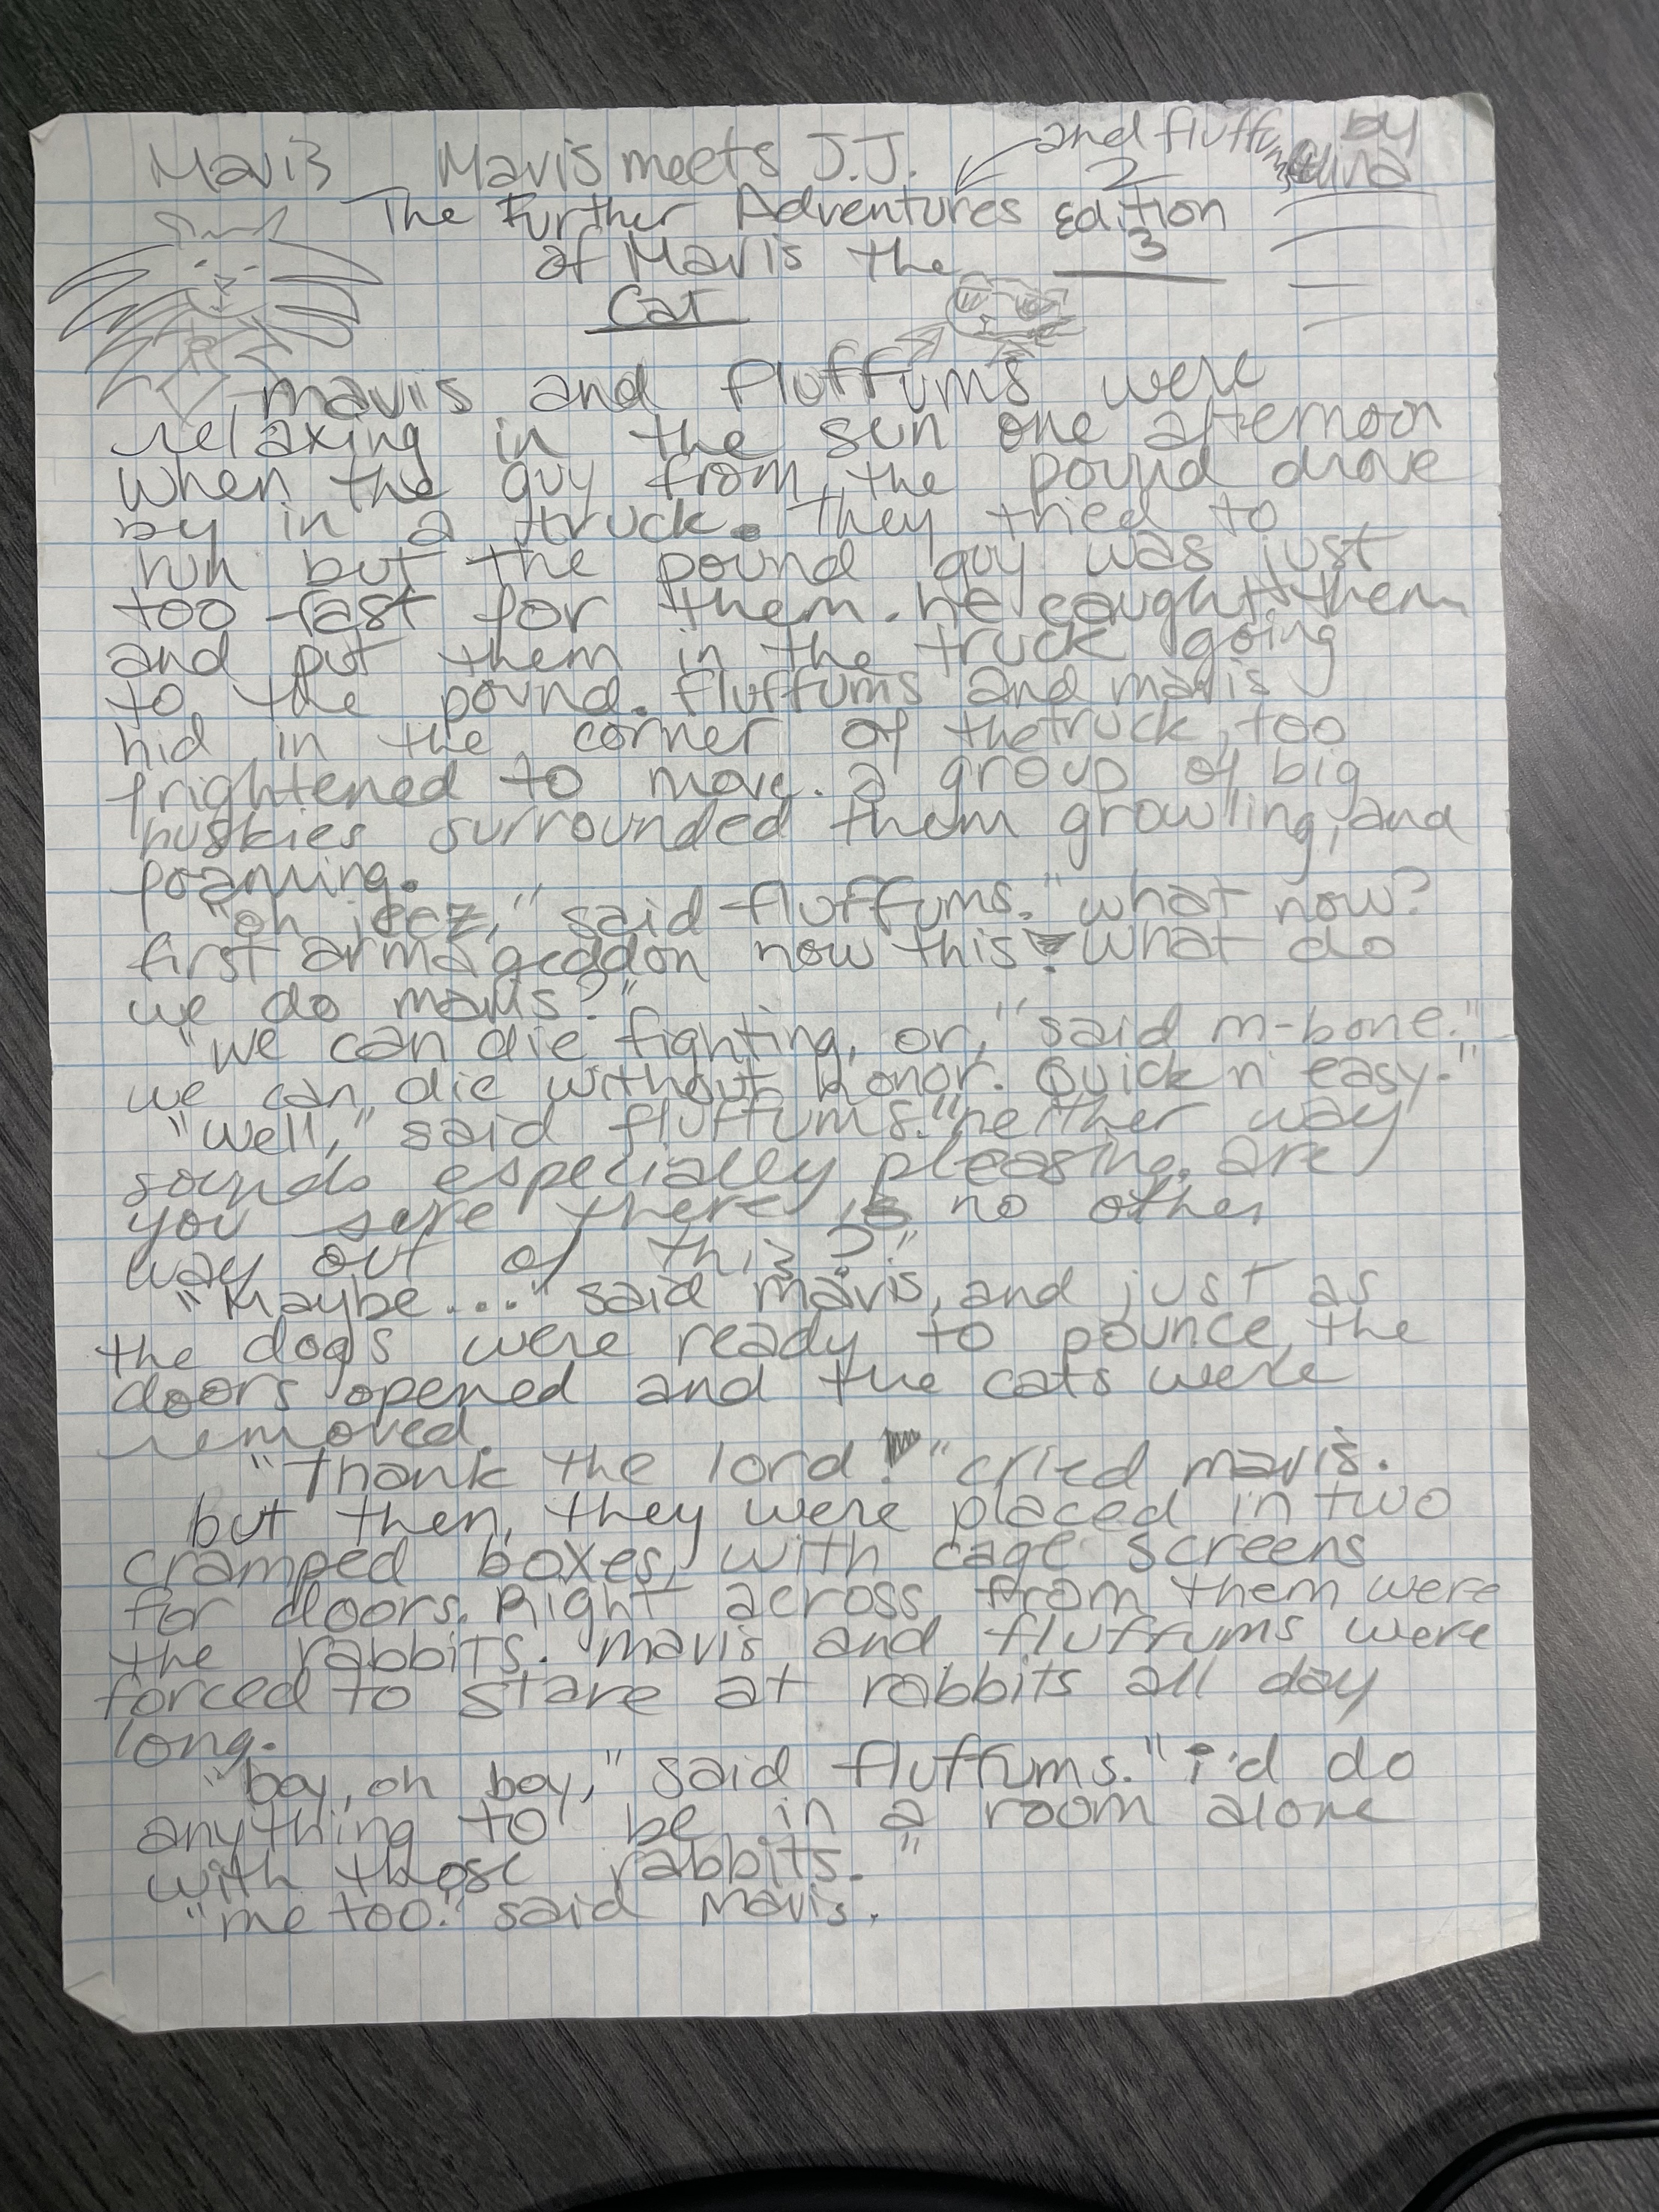 Mavis Mavis meets J.J. and fluffums by
The Further Adventures 2 Edition
of Mavis the 3
Cat
mavis and fluffums were
relaxing in the sun one afternoon
when the guy from the pound drove
by in a truck. They tried to
run but the pound guy was just
too fast for them. he caught them
and put them in the truck going
to the pound. fluffums and mavis
hid in the corner of the truck, too
frightened to move. a group of big
huskies surrounded them growling, and
foaming.
"oh jeez," said fluffums. "what now?
first armageddon now this! what do
we do mavis?"
"we can die fighting, or," said m-bone."
we can die without honor. Quick n' easy."
"well," said fluffums. "neither way
sounds especially pleasing. are
you sure there is no other
way out of this?"
"Maybe...." said mavis, and just as
the dogs were ready to pounce, the
doors opened and the cats were
removed.
"Thank the lord!" cried mavis.
but then, they were placed in two
cramped boxes, with cage screens
for doors. Right across from them were
the rabbits. mavis and fluffums were
forced to stare at rabbits all day
long.
"boy, oh boy," said fluffums. "i'd do
anything to be in a room alone
with those rabbits."
"me too." said Mavis.